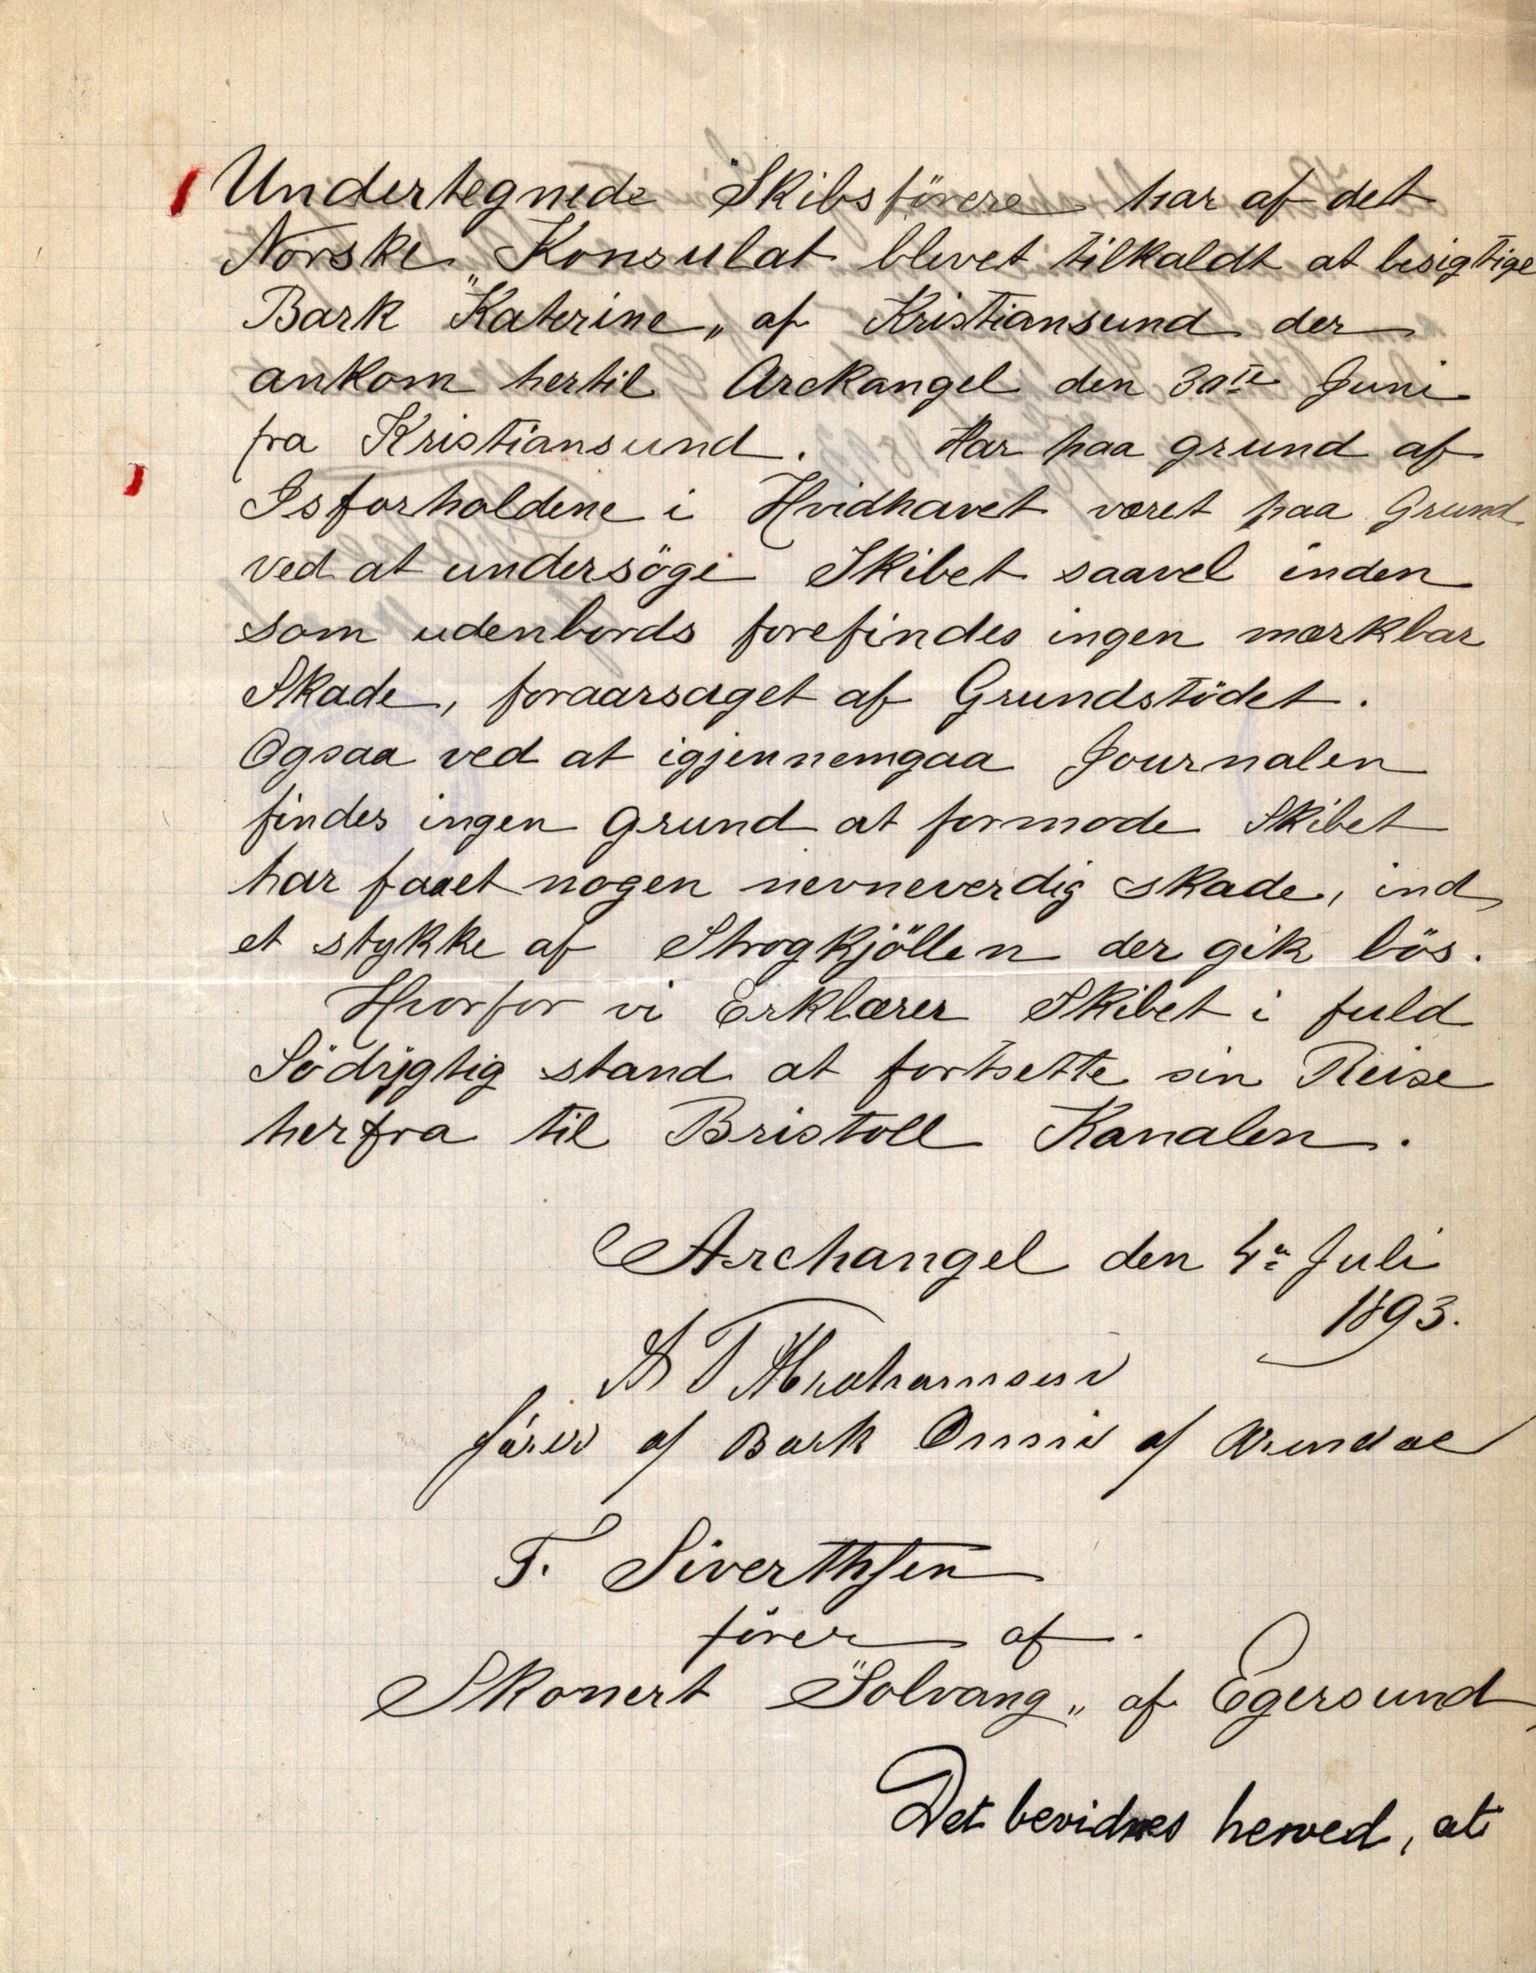 Undertegnede Skibsförere har af det
Norske Konsulat blevet tilkaldt at besigtige
Bark "Katerine„ af Kristiansund der
ankom hertil Arckangel den 30te Juni
fra Kristiansund. Har paa grund af
Isforholdene i Hvidhavet været paa Grund
ved at undersöge Skibet saavel inden
som udenbords forefindes ingen mærkbar
Skade, foraarsaget af Grundstödet.
Ogsaa ved at igjennemgaa Journalen
findes ingen grund at formode Skibet
har faaet nogen nevneverdig skade, ind
et stykke af Strogkjöllen der gik lös.
Hvorfor vi Erklærer Skibet i fuld
Södygtig stand at fortsette sin Reise
herfra til Bristoll Kanalen.
Archangel den 4de Juli
1893.
A T Abrahamsen
förer af Bark af Arendal
T. Siverthsen
förer af
Skonert "Solvang„ af Egersund
Det bevidnes herved, at